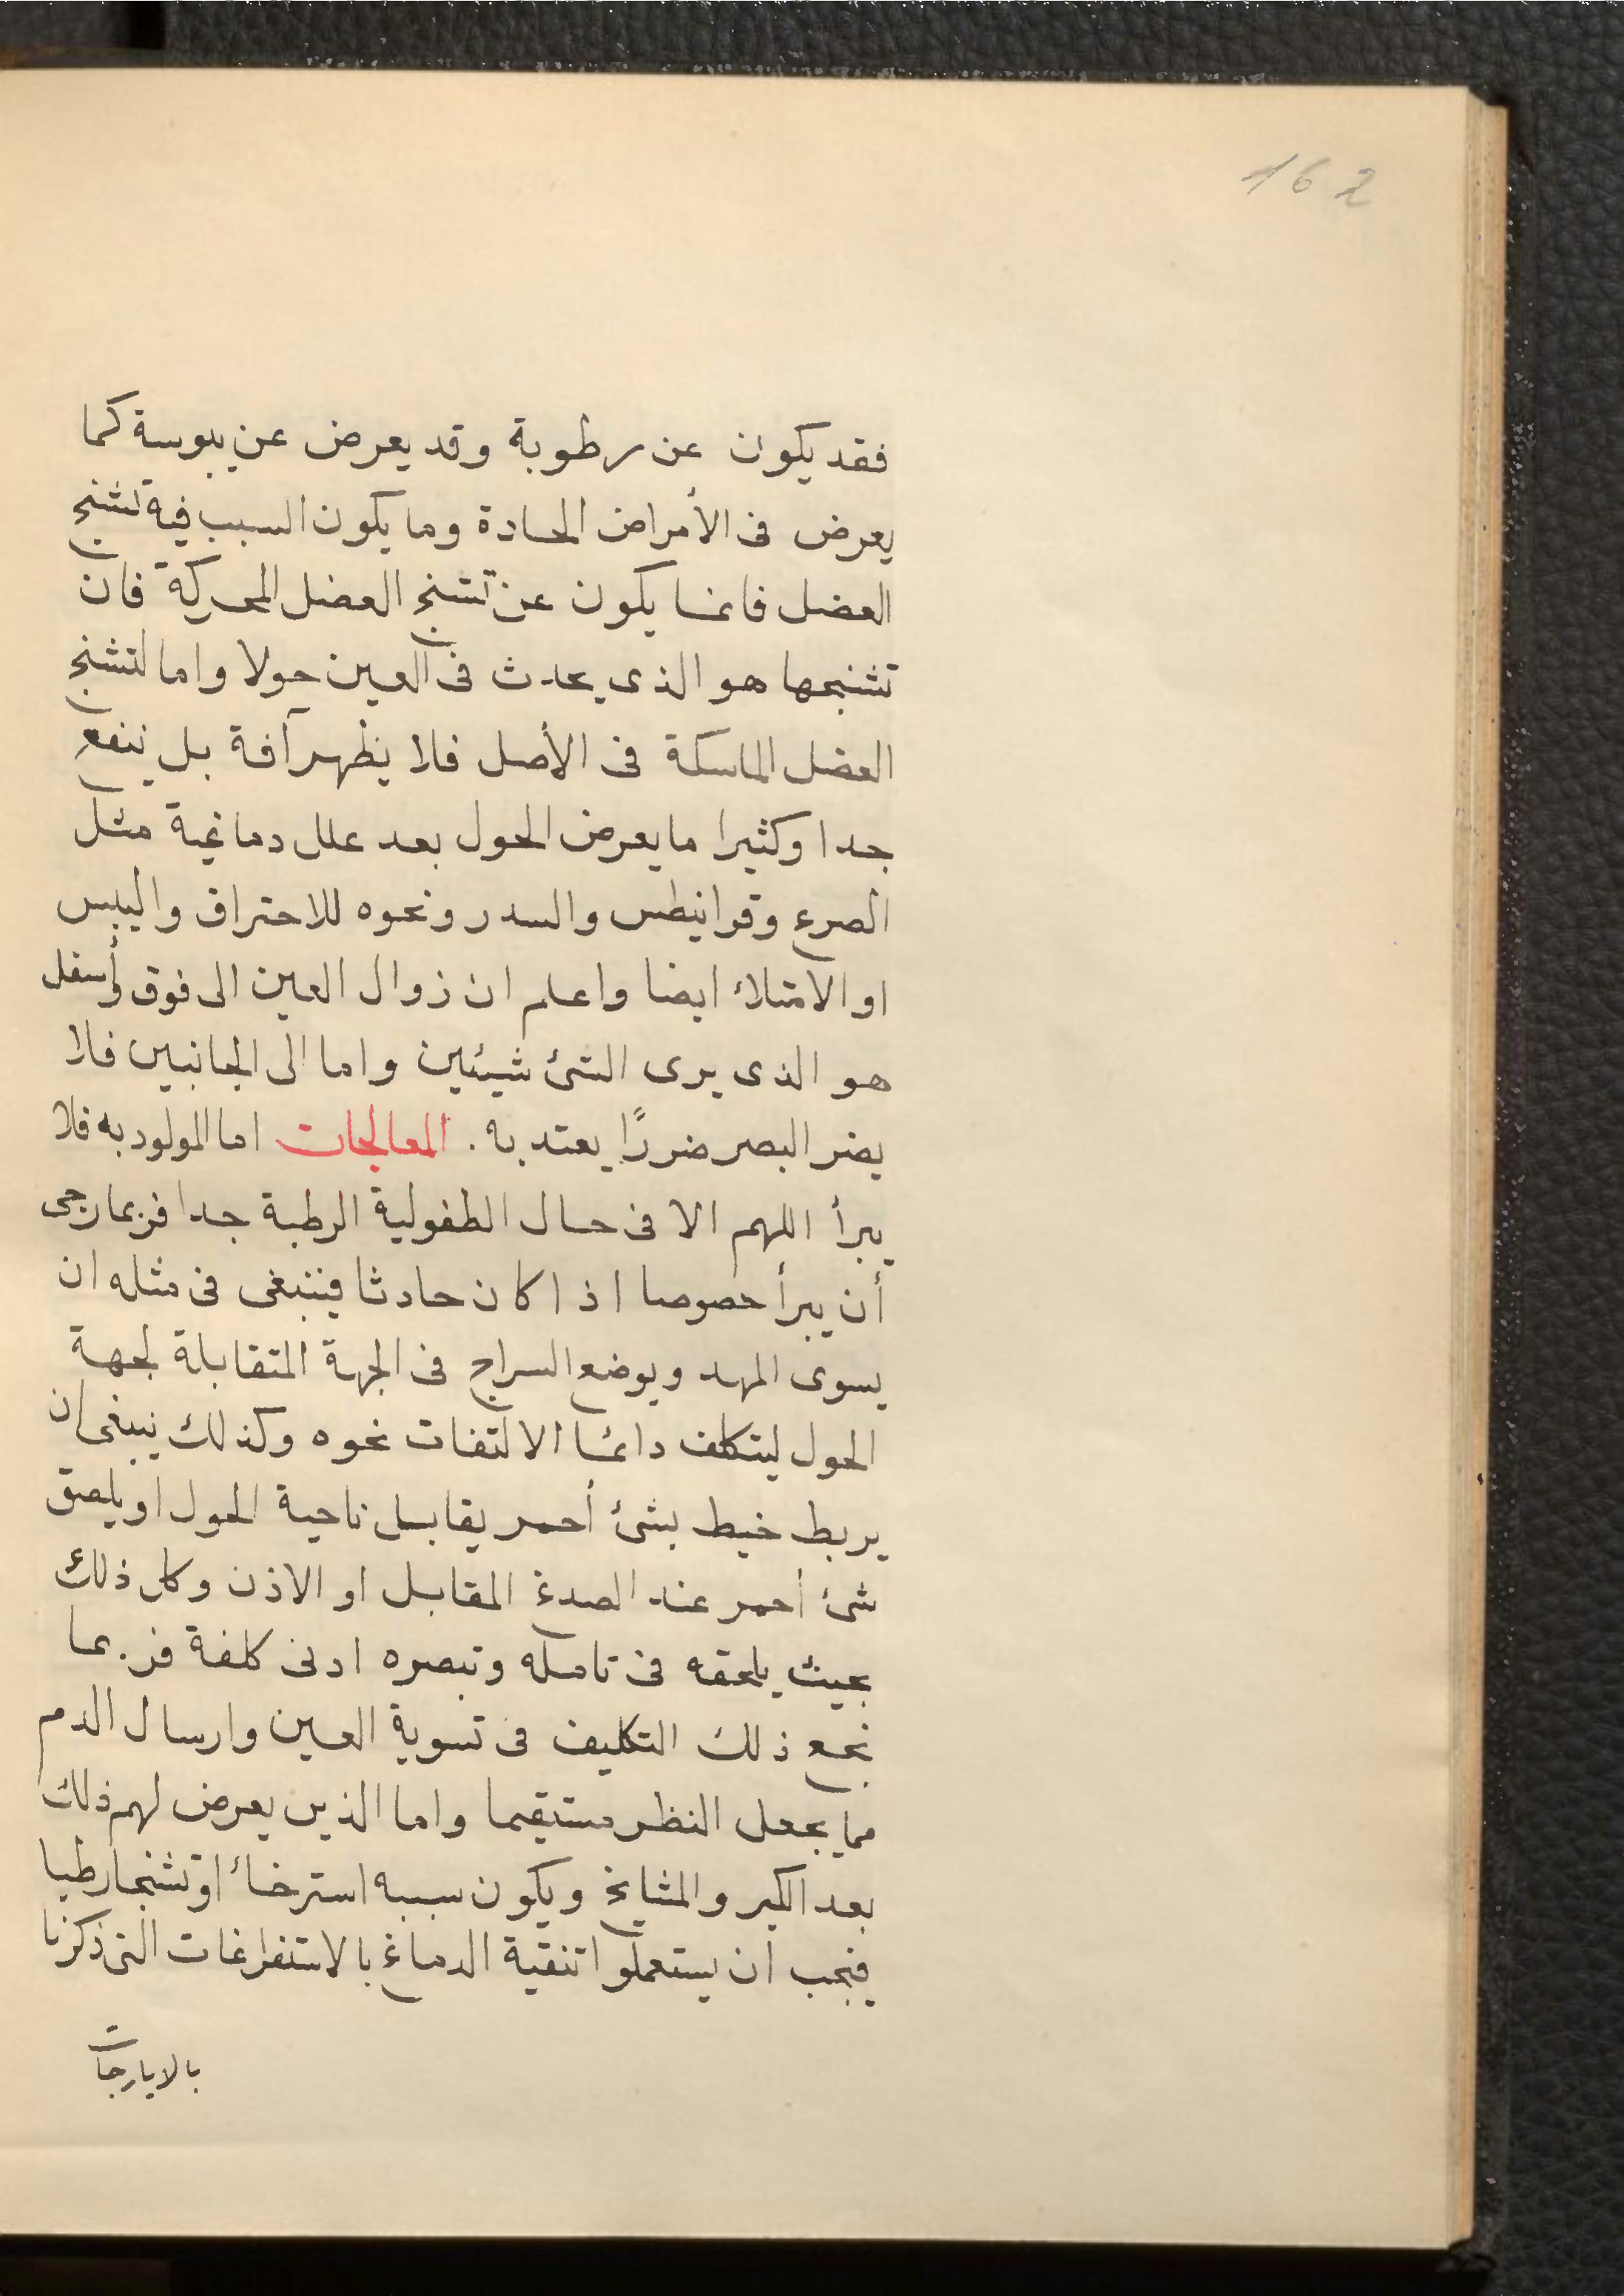 162
فقد يكون عن رطوبة وقد يعرض عن يبوسة كما
يعرض فى الأمراض الحادة وما يكون السبب فيه تشنج
العضل فانما يكون عن تشنج العضل المحركة فان
تشنجها هو الذى يحدث فى العين حولا واما لتشنج
العضل الماسكة فى الأصل فلا يظهر آفة بل ينفع
جدا وكثيرا ما يعرض الحول بعد علل دماغية مثل
الصرع وقرانيطس والسدر ونحوه للاحتراق واليبس
او الامتلاء ايضا واعلم ان زوال العين الى فوق وأسفل
هو الذى يرى الشئ شيئين واما الى الجانبين فلا
يضر البصر ضررًا يعتد به . المعالجات اما المولود به فلا
يبرأ اللهم الا فى حال الطفولية الرطبة جدا فربما رجى
أن يبرأ خصوصا اذا كان حادثا فينبغى فى مثله ان
يسوى المهد ويوضع السراج فى الجهة المتقابلة لجهة
الحول ليتكلف دائما الالتفات نحوه وكذلك ينبغى ان
يربط خيط بشئ أحمر يقابل ناحية الحول او يلصق
شئ أحمر عند الصدغ المقابل او الاذن وكل ذلك
بحيث يلحقه فى تامله وتبصره ادنى كلفة فربما
نجع ذلك التكليف فى تسوية العين وارسال الدم
مما يجعل النظر مستقيما واما الذين يعرض لهم ذلك
بعد الكبر والمشايخ ويكون سببه استرخاء او تشنجا رطبا
فيجب ان يستعملوا تنقية الدماغ بالاستفراغات التى ذكرنا
بالايارجات